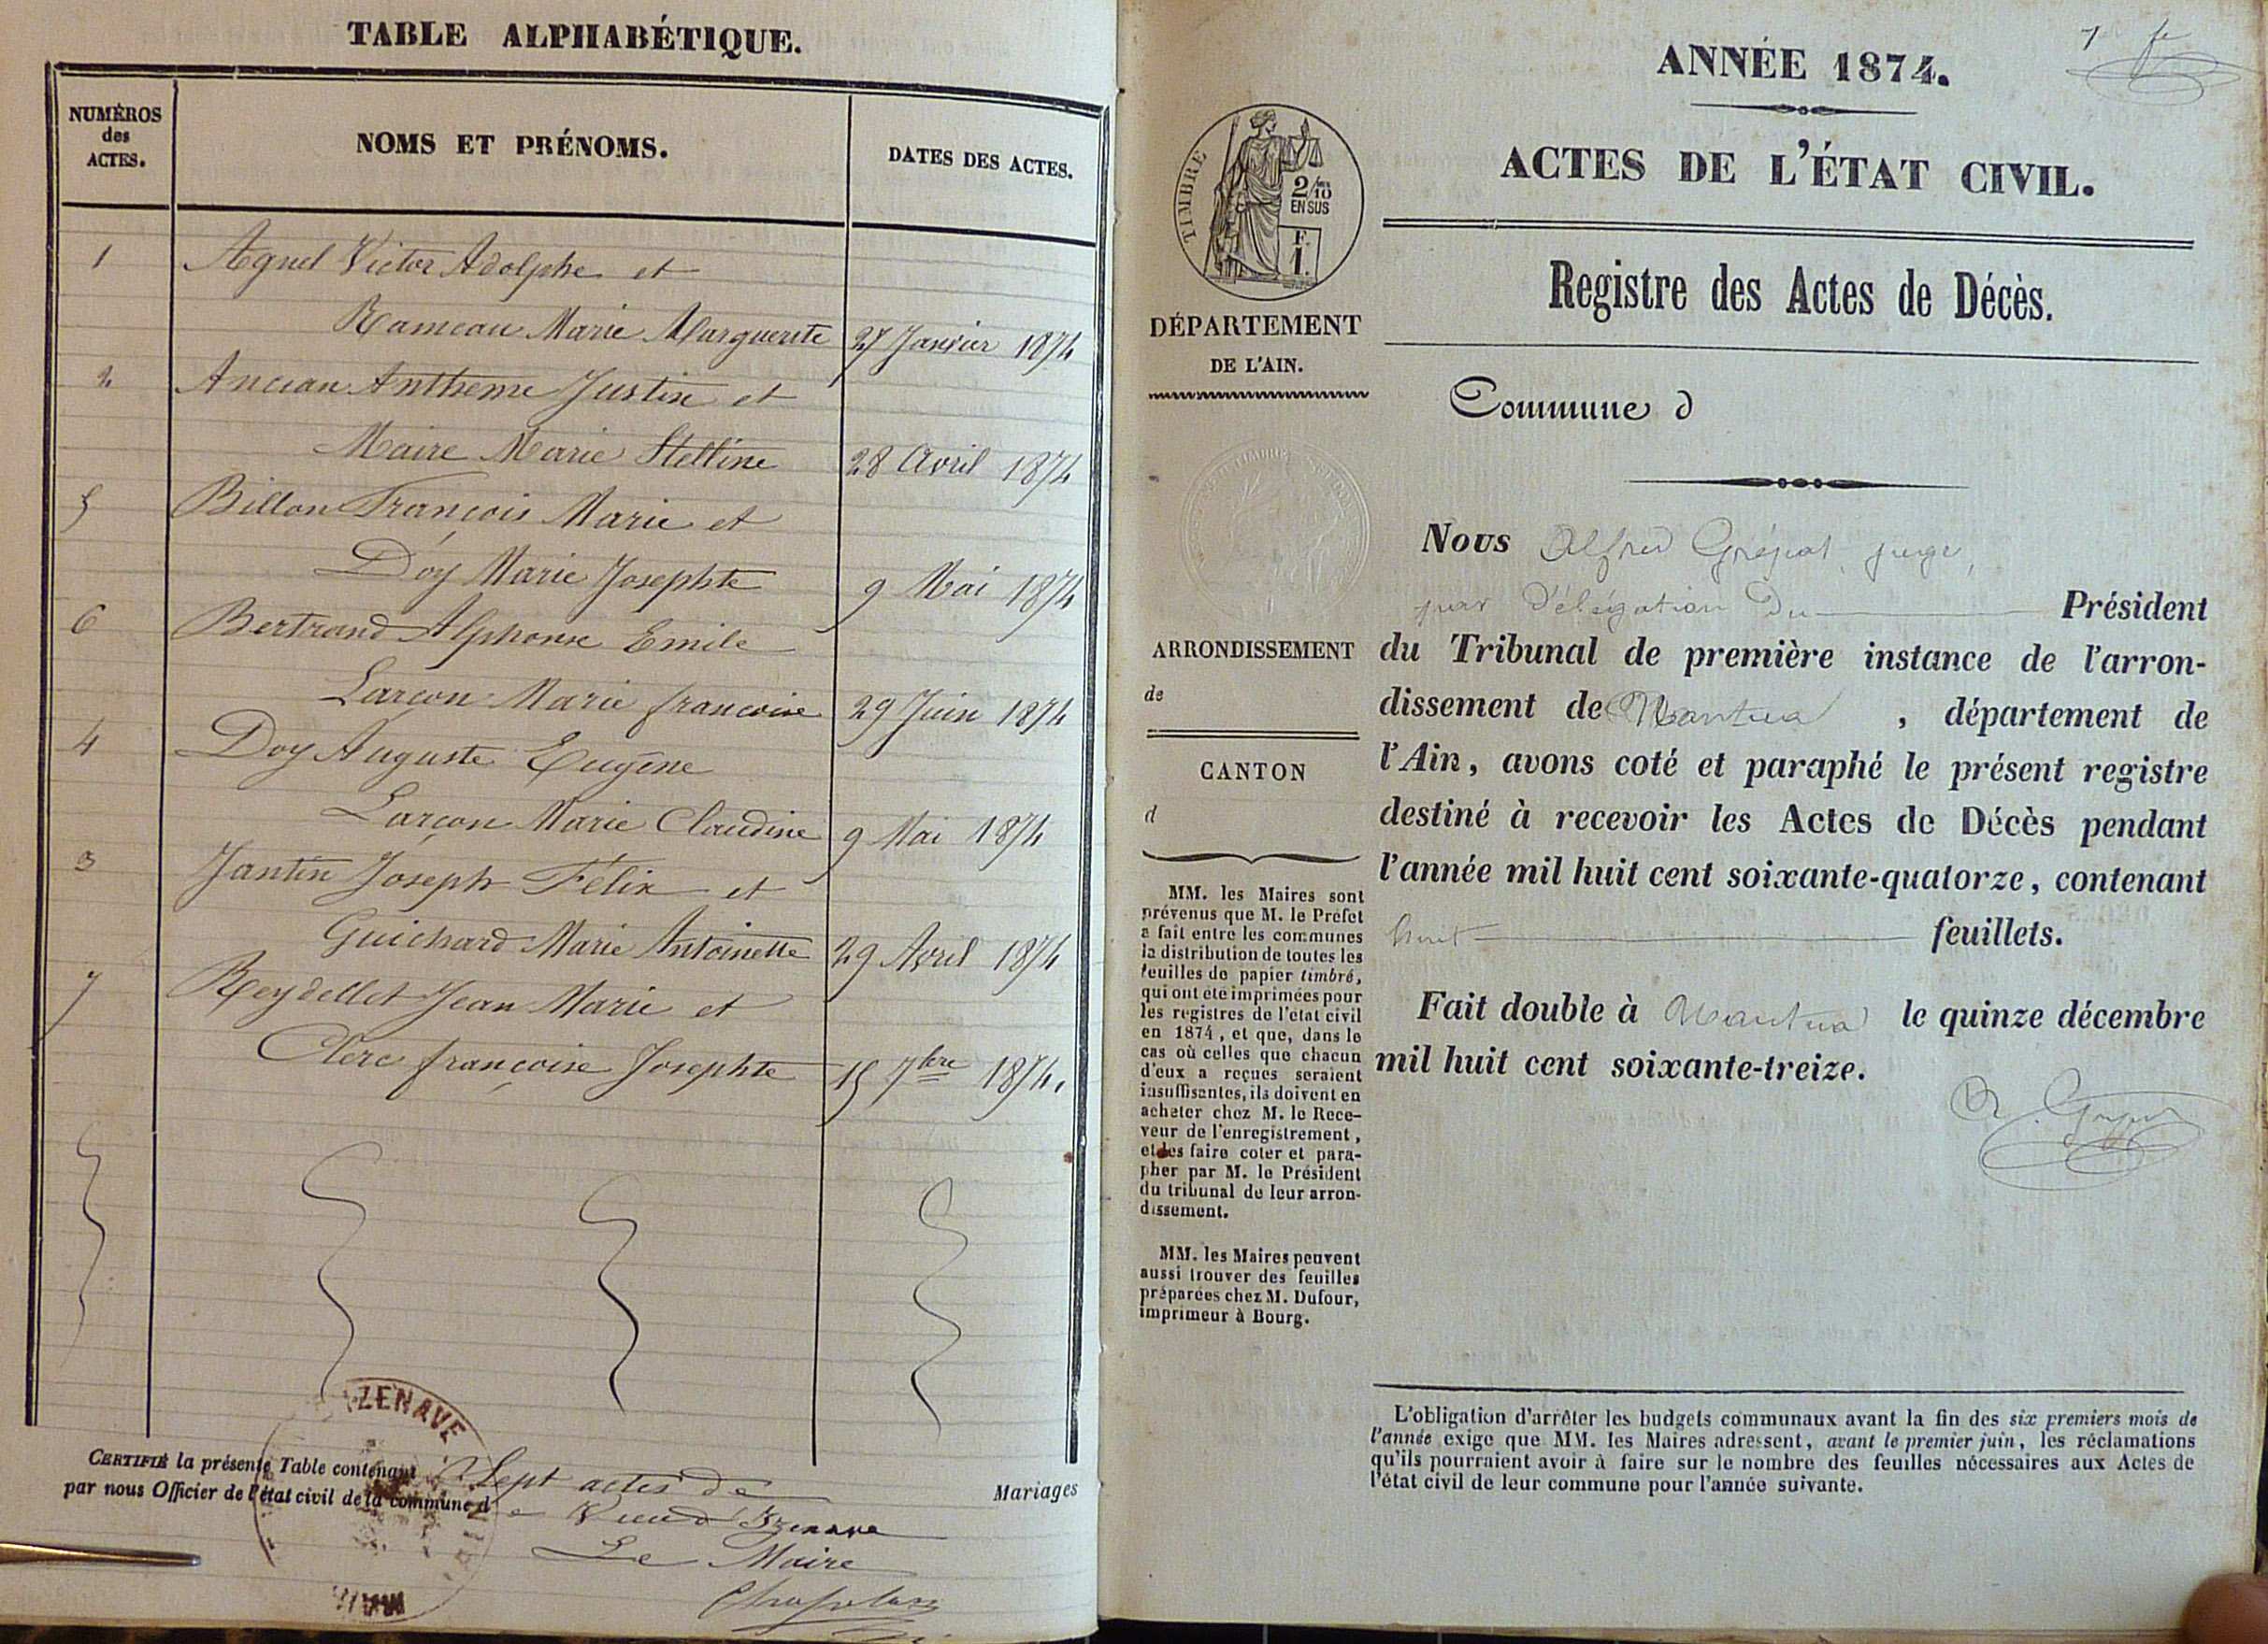 TABLE ALPHABÉTIQUE.
NUMÉROS
des
ACTES.
NOMS ET PRÉNOMS.
DATES DES ACTES.
1 Agnel Victor Adolphe et
Rameau Marie Marguerite 27 Janvier 1874
2 Ancian Anthême Justin et
Maire Marie Stelline 28 Avril 1874
5 Billon François Marie et
Doy Marie Josephte 9 Mai 1874
6 Bertrand Alphonse Emile
Larçon Marie françoise 29 Juin 1874
4 Doy Auguste Eugène
Larçon Marie Claudine 9 Mai 1874
3 Jantin Joseph Félix et
Guichard Marie Antoinette 29 Avril 1874
7 Reydellet Jean Marie et
Clerc françoise Josephte 15 7bre 1874.
CERTIFIÉ la présente Table contenant Sept actes de Mariages
par nous Officier de l'état civil de la commune de Vieud'Izenave
Le Maire
IZENAVE
ANNÉE 1874.
ACTES DE L'ÉTAT CIVIL.
Registre des Actes de Décès.
TIMBRE
2/10
EN SUS
F.
1.
DÉPARTEMENT
DE L'AIN.
ARRONDISSEMENT
de
CANTON
d
MM. les Maires sont
prévenus que M. le Préfet
a fait entre les communes
la distribution de toutes les
feuilles de papier timbré,
qui ont été imprimées pour
les registres de l'état civil
en 1874, et que, dans le
cas où celles que chacun
d'eux a reçues seraient
insuffisantes, ils doivent en
acheter chez M. le Rece-
veur de l'enregistrement,
et les faire coter et para-
pher par M. le Président
du tribunal de leur arron-
dissement.
MM. les Maires peuvent
aussi trouver des feuilles
préparées chez M. Dufour,
imprimeur à Bourg.
Commune d
Nous Alfred Grépat, juge,
par délégation du Président
du Tribunal de première instance de l'arron-
dissement de Nantua, département de
l'Ain, avons coté et paraphé le présent registre
destiné à recevoir les Actes de Décès pendant
l'année mil huit cent soixante-quatorze, contenant
huit feuillets.
Fait double à Nantua le quinze décembre
mil huit cent soixante-treize.
L'obligation d'arrêter les budgets communaux avant la fin des six premiers mois de
l'année exige que MM. les Maires adressent, avant le premier juin, les réclamations
qu'ils pourraient avoir à faire sur le nombre des feuilles nécessaires aux Actes de
l'état civil de leur commune pour l'année suivante.